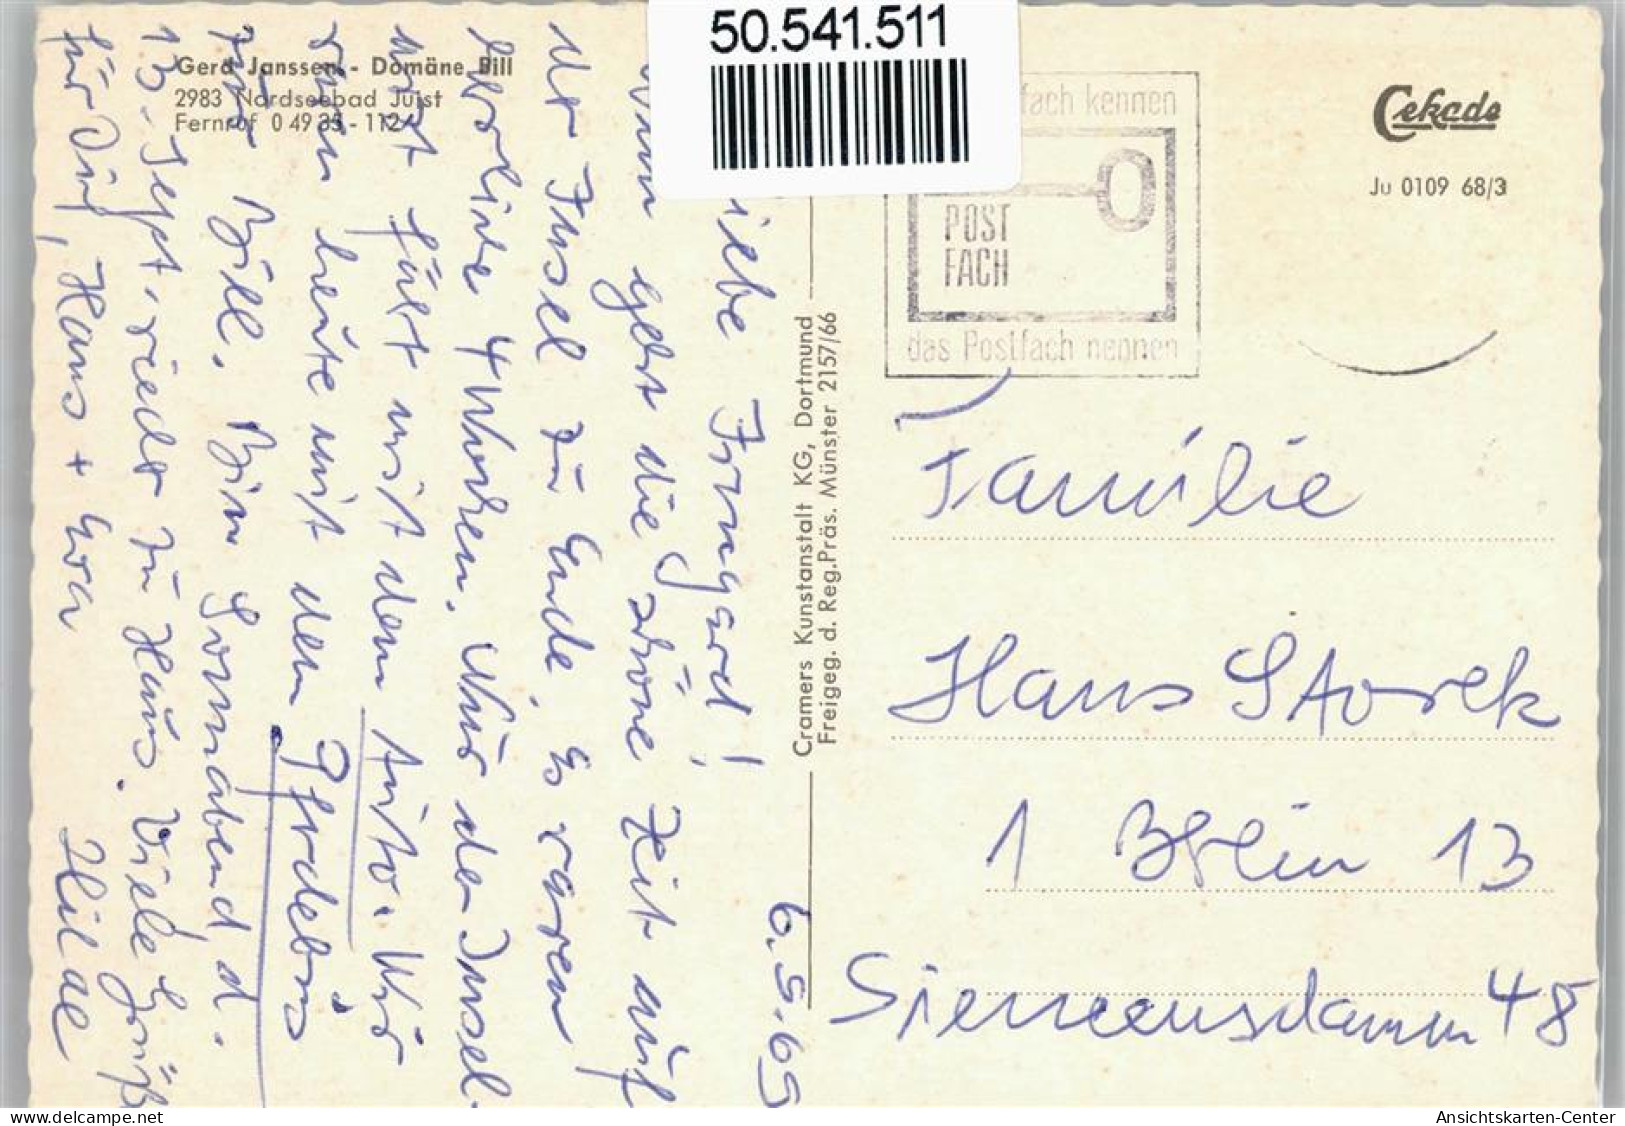 50.541.511
Gerd Janssen - Domäne Bill
2983 Nordseebad Juist
Fernruf 0 49 35 - 112
Cekade
Ju 0109 68/3
fach kennen
POST
FACH
das Postfach nennen
Cramers Kunstanstalt KG, Dortmund
Freigeg. d. Reg.Präs. Münster 2157/66
6.9.69
iebe Irmgard!
Nun geht die schöne Zeit auf
der Insel zu Ende. Es waren
herrliche 4 Wochen. Nur der Insel-
arzt fährt mit dem Auto. Wir
fahren heute mit dem Pferdebus
zur Bill. Bin Sonnabend d.
13. Sept. wieder zu Haus. Viele Grüße
für Dich, Hans + Eva
Hilde
Familie
Hans Storek
1 Berlin 13
Siemensdamm 48
Ansichtskarten-Center
delcampe.net